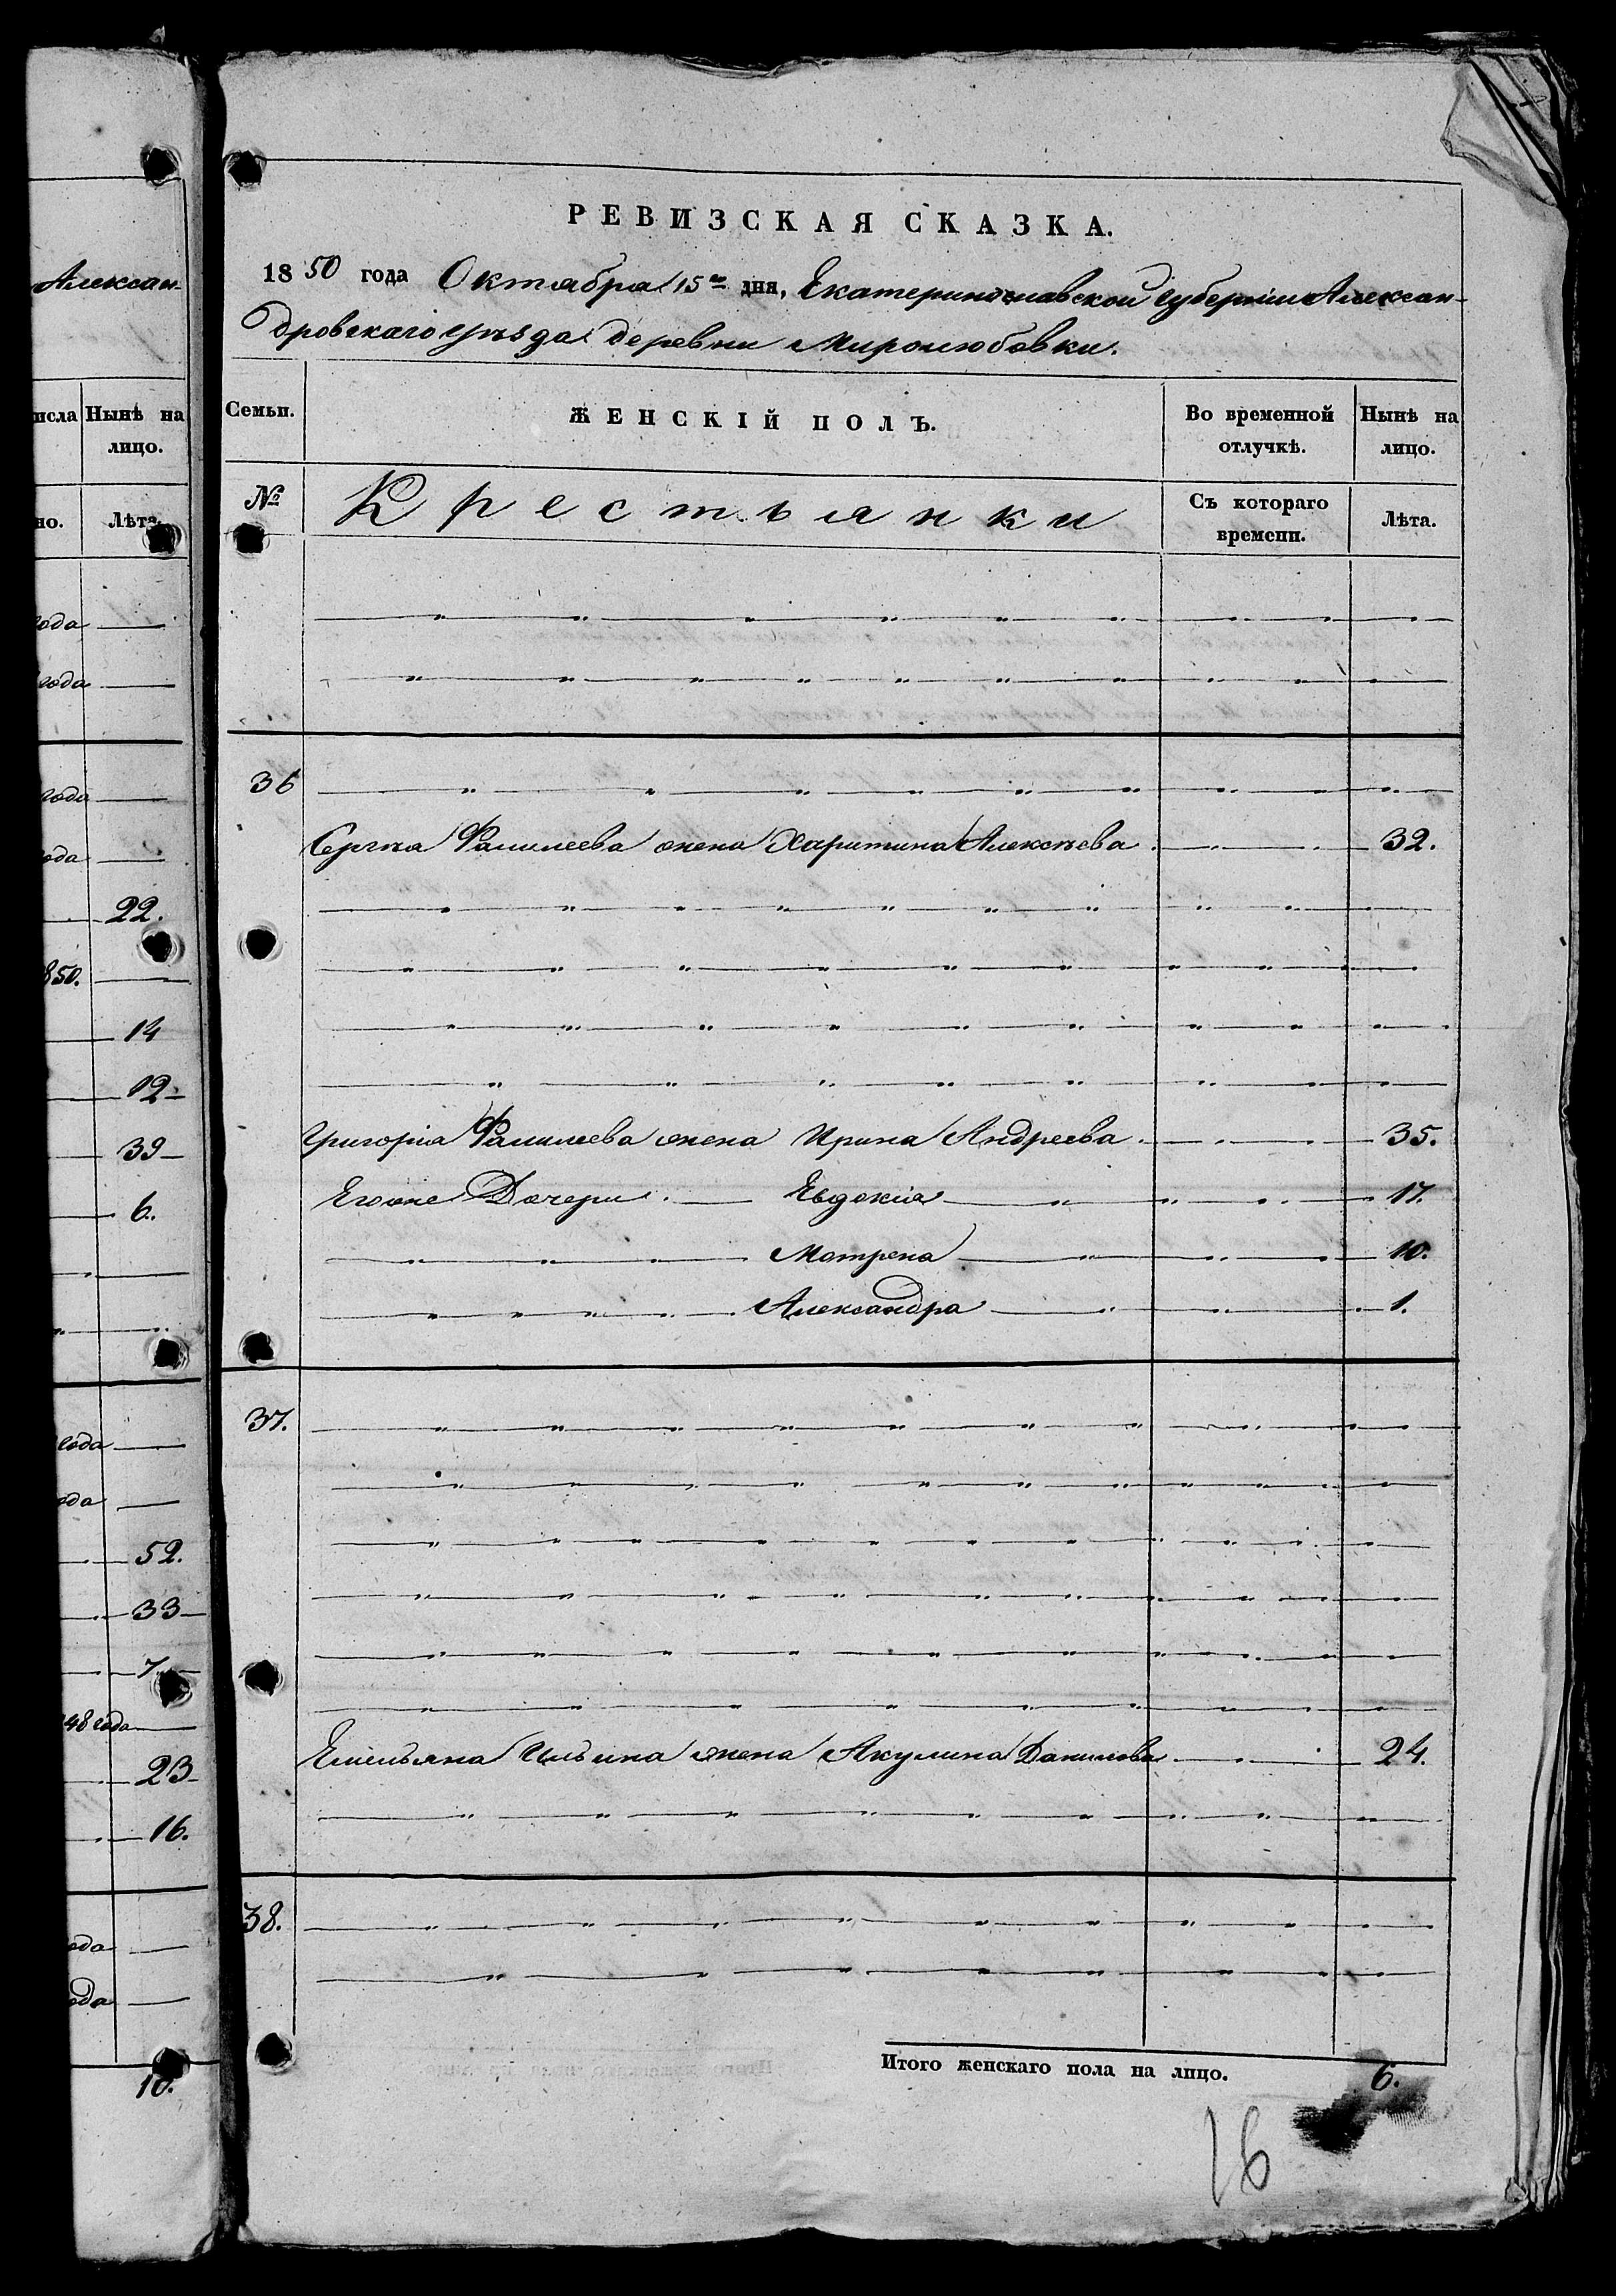 Алексан-
исла Нынѣ на
лицо.
но. Лѣта.
года —
года —
года —
ода —
22.
850. —
14
12
39
6.
года —
ода —
52.
33
7
48 года —
23
16.
ода —
ода —
10.
РЕВИЗСКАЯ СКАЗКА.
1850 года Октября 15го дня, Екатеринославской Губернiи Алексан-
дровскаго Уѣзда деревни Миролюбовки.
Семьи. ЖЕНСКIЙ ПОЛЪ. Во временной Нынѣ на
отлучкѣ. лицо.
№ Крестьянки Съ котораго Лѣта.
времени.
36
Сергѣя Фамилеева жена Харитина Алексѣева 32.
Григорiя Фамилеева жена Ирина Андреева 35.
Егоже Дочери Евдокiя 17.
Матрена 10.
Александра 1.
37.
Емельяна Ильина жена Акулина Данилова 24.
38.
Итого женскаго пола на лицо. 6.
16